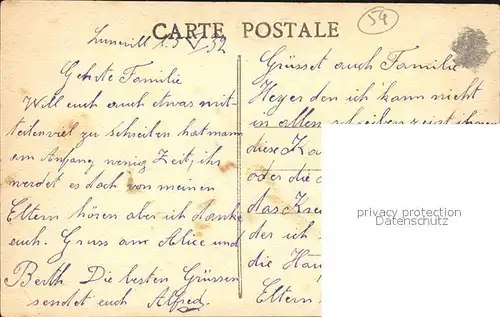 CARTE POSTALE
54
Luneville 15 V 32
Geherte Familie
Will euch auch etwas mit-
teilen viel zu schreiben hat mann
am Anfang wenig Zeit, ihr
werdet es doch von meinen
Eltern hören aber ich danke
euch. Gruss an Alice und
Berth. Die besten Grüssen
sendet euch Alfred.
Grüsset auch Familie
Heyer den ich kann nicht
in allen schreiben zeigt ihnen
diese Ka
oder die
das Kre
der ich
die Hän
Eltern
privacy protection
www.ansichtskarten-center.de